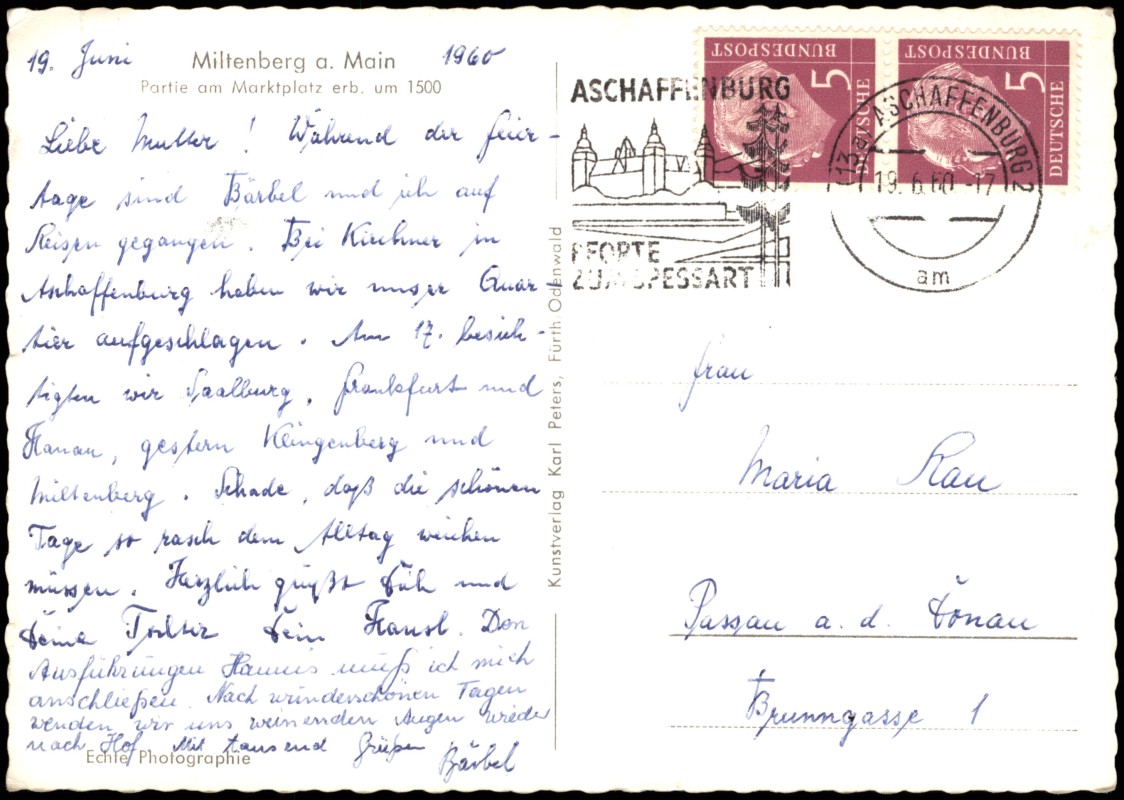 19. Juni 1960
Miltenberg a. Main
Partie am Marktplatz erb. um 1500
Liebe Mutter! Während der Feier-
tage sind Bärbel und ich auf
Reisen gegangen. Bei Kirchner in
Aschaffenburg haben wir unser Quar-
tier aufgeschlagen. Am 17. besich-
tigten wir Saalburg, Frankfurt und
Hanau, gestern Klingenberg und
Miltenberg. Schade, daß die schönen
Tage so rasch dem Alltag weichen
müssen. Herzlich grüßt Dich und
Deine Tochter Dein Hansl. Den
Ausführungen Hanns muß ich mich
anschließen. Nach wunderschönen Tagen
wenden wir uns weinenden Augen wieder
nach Hof. Mit tausend Grüßen
Bärbel
Echte Photographie
Kunstverlag Karl Peters, Fürth Odenwald
ASCHAFFENBURG
PFORTE
ZUM SPESSART
DEUTSCHE
BUNDESPOST
5
DEUTSCHE
BUNDESPOST
5
(13a) ASCHAFFENBURG 2
19.6.60.-17
am
Frau
Maria Rau
Passau a. d. Donau
Brunngasse 1